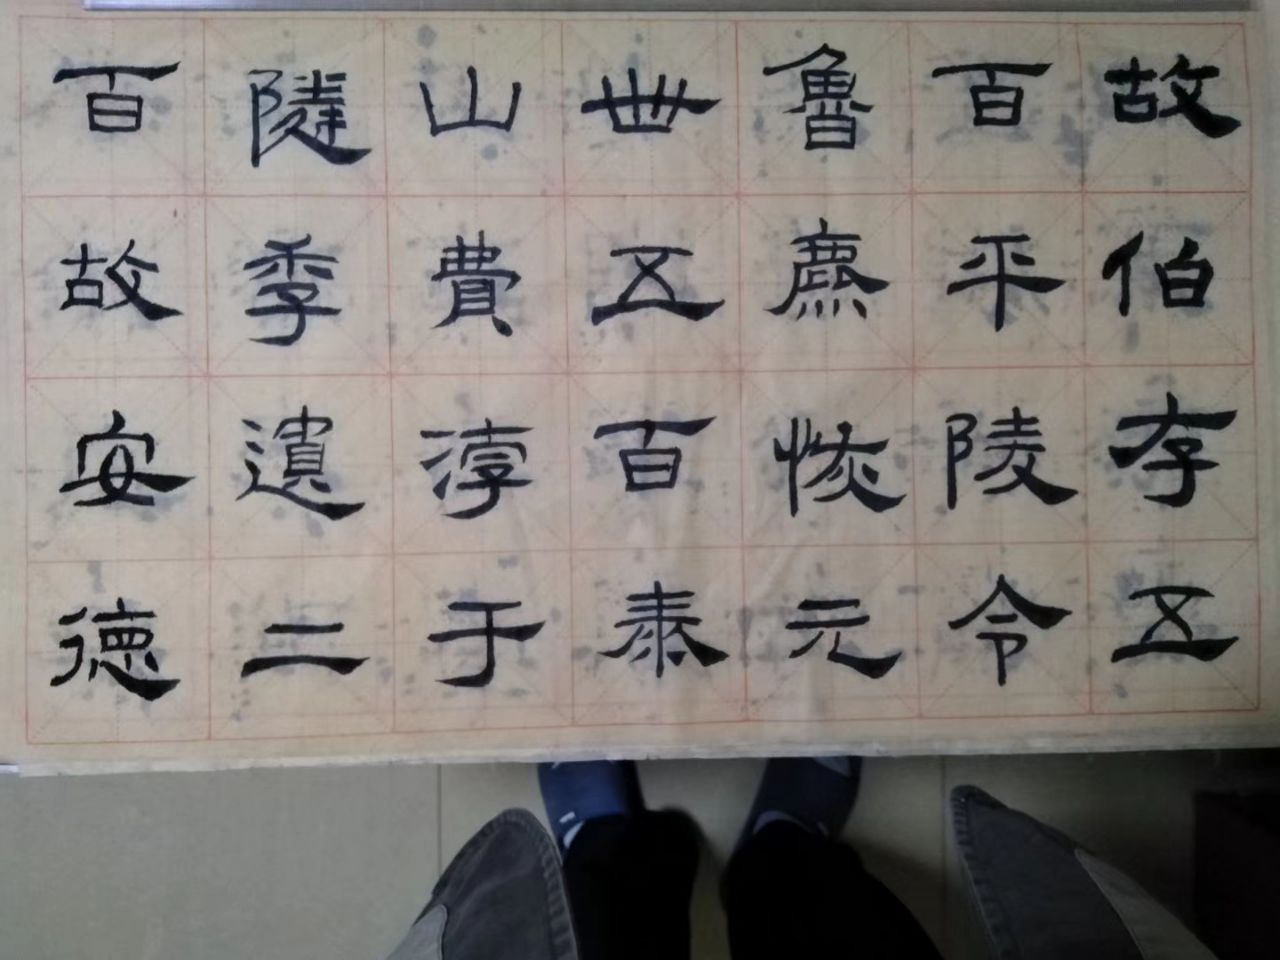 故伯存五
百平陵令
魯麃恢元
世五百泰
山費淳于
隣季遺二
百故安德